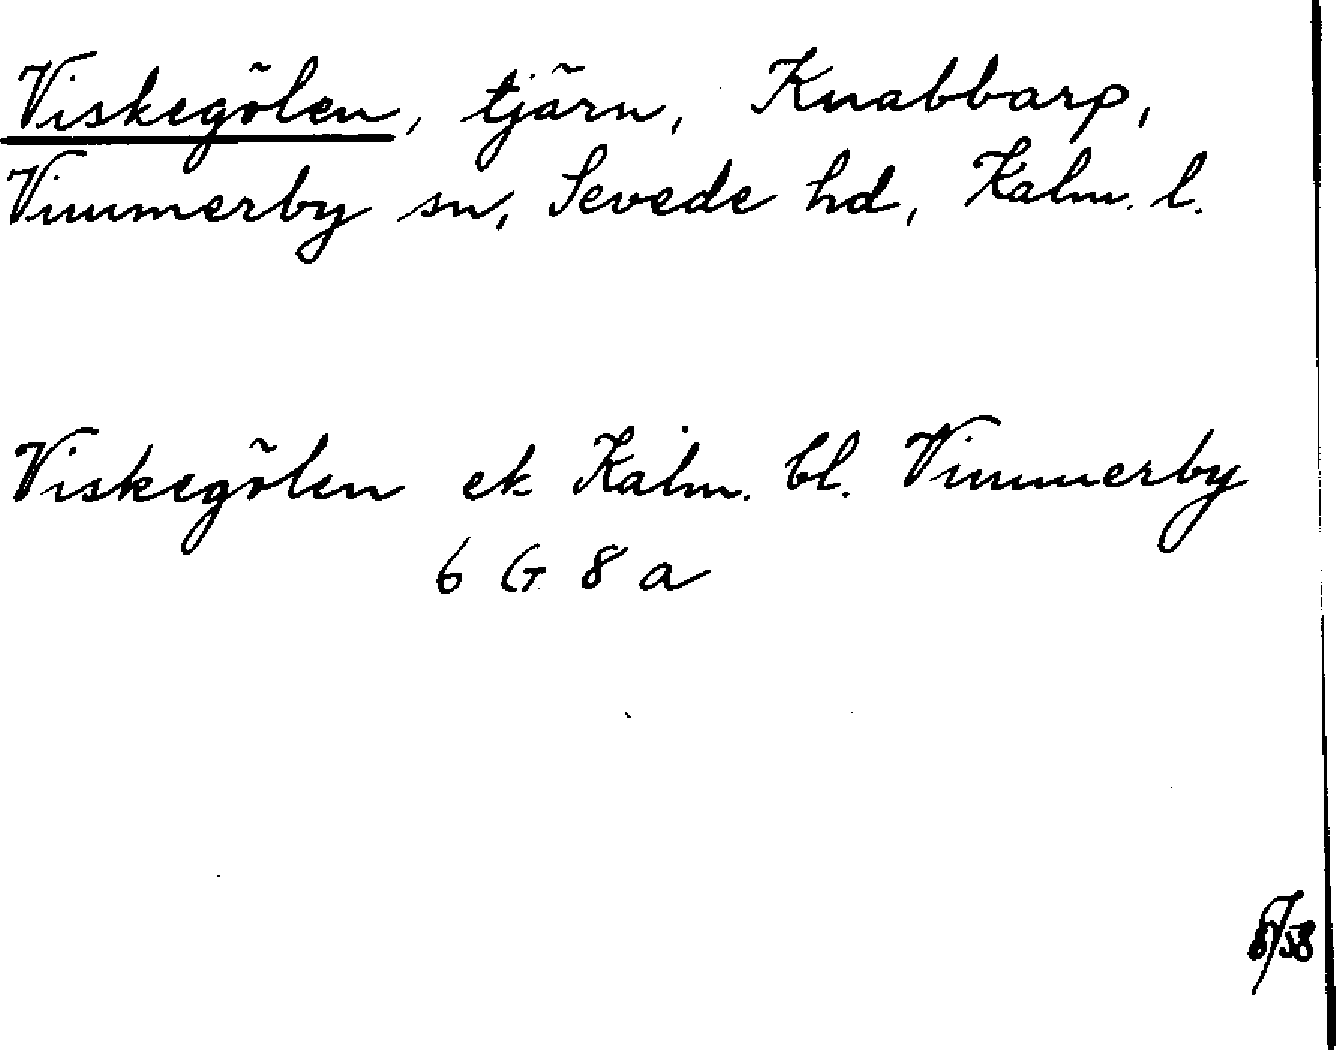 Viskegölen, tjärn, Knabbarp,
Vimmerby sn, Sevede hd, Kalm. l.
Viskegölen ek Kalm. bl. Vimmerby
6 G 8 a